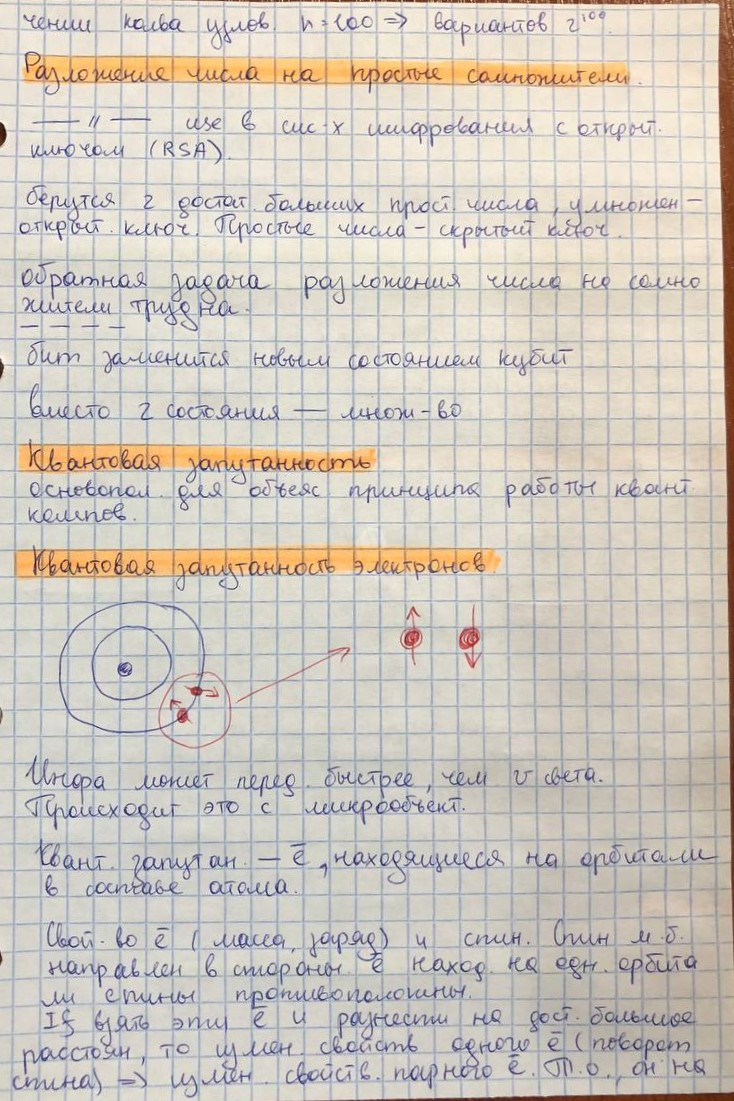 чении кол-ва узлов. n=100 => вариантов 2^100.
Разложение числа на простые сомножители.
— 〃 — use в сис-х шифрования с открыт.
ключом (RSA).
берутся 2 достат. больших прост. числа, умножен –
открыт. ключ. Простые числа – скрытый ключ.
обратная задача разложения числа на сомно
жители трудна.
– – – –
бит заменится новым состоянием кубит
вместо 2 состояния — множ-во
Квантовая запутанность
основопол. для объяс принципа работы квант
компов.
Квантовая запутанность электронов.
Инфра может перед. быстрее, чем v света.
Происходит это с микрообъект.
Квант. запутан. – ē, находящиеся на орбитали
в составе атома.
Свой-во ē (масса, заряд) и спин. Спин м.б.
направлен в стороны. ē наход. на одн. орбита
ли спины противоположны.
If взять эти ē и разнести на дост. большое
расстоян, то измен. свойств одного ē (поворот
спина) => измен. свойств. парного ē. Т.о., он на